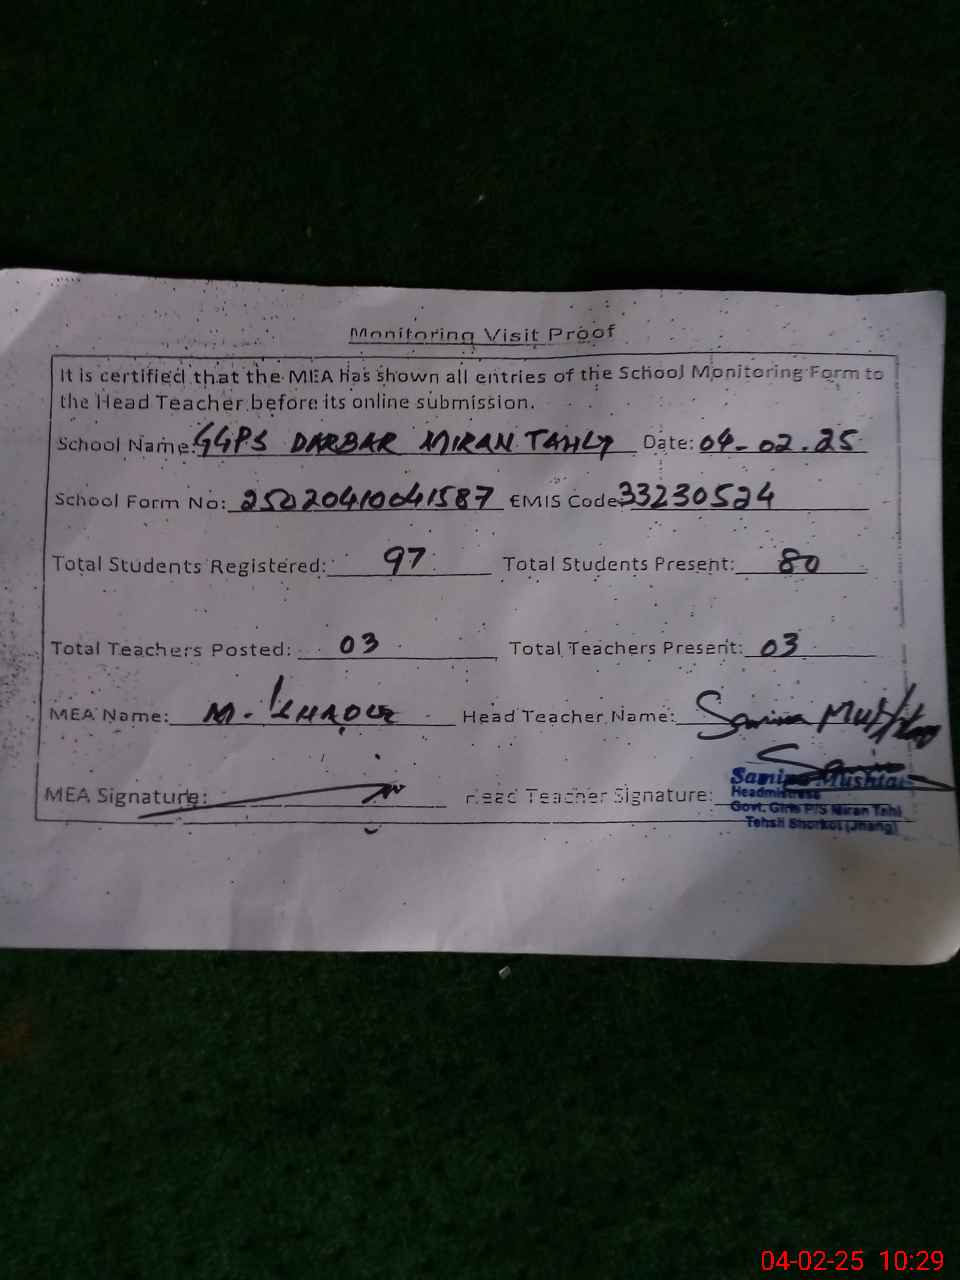 Monitoring Visit Proof
It is certified that the MEA has shown all entries of the School Monitoring Form to
the Head Teacher before its online submission.
School Name: GGPS DARBAR MIRAN TAHLY Date: 04-02.25
School Form No: 25020410041587 EMIS Code: 33230524
Total Students Registered: 97 Total Students Present: 80
Total Teachers Posted: 03 Total Teachers Present: 03
MEA Name: M. Head Teacher Name: Samina Mushtaq
MEA Signature: Head Teacher Signature:
Samina Mushtaq
Headmistress
Govt. Girls P/S Miran Tahli
Tehsil Shorkot (Jhang)
04-02-25 10:29